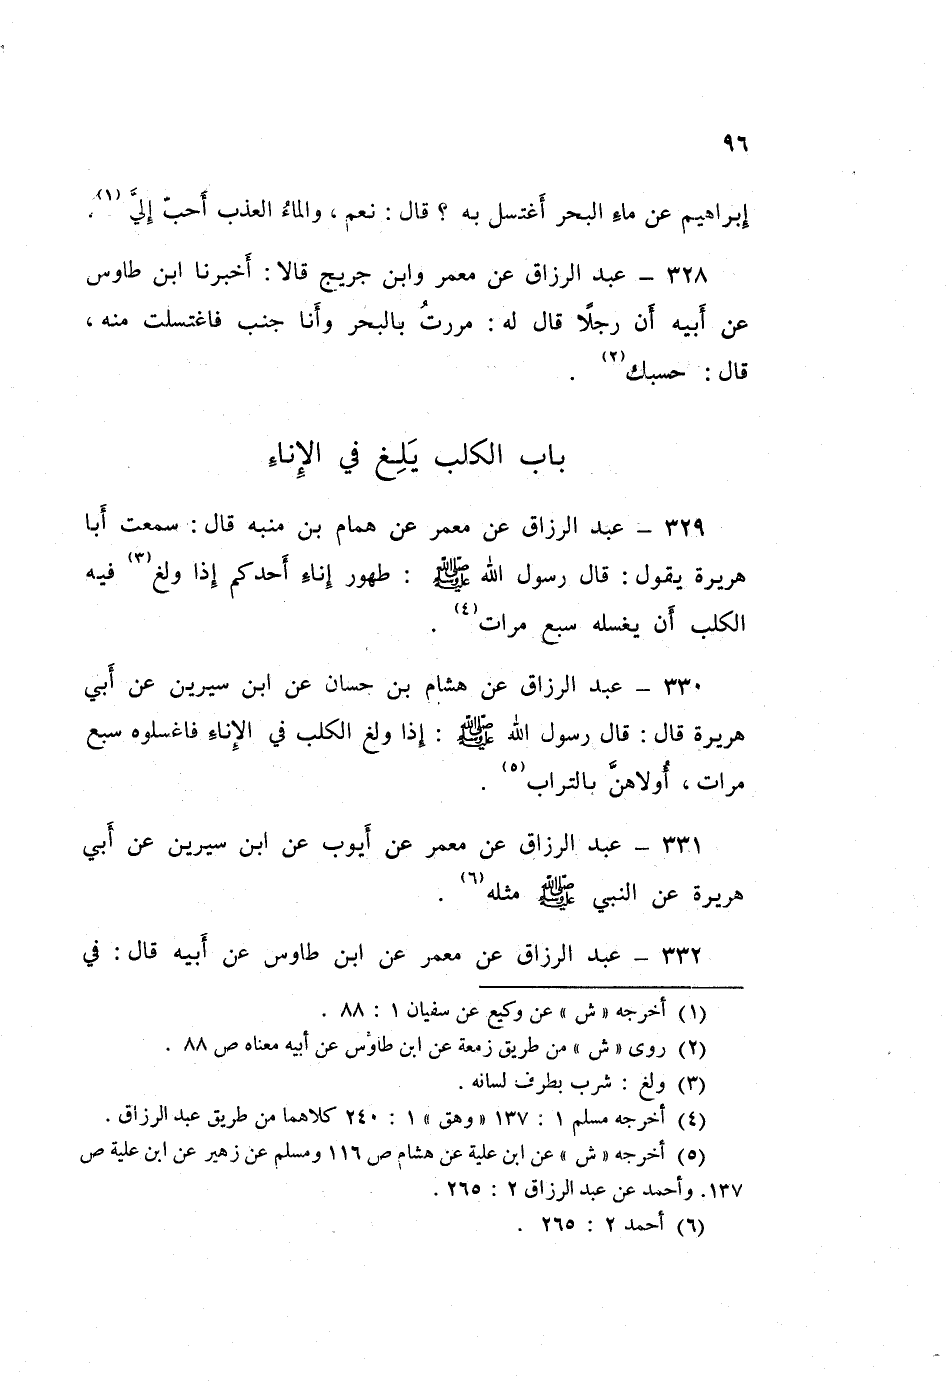 ٩٦
إبراهيم عن ماءِ البحر أَغتسل به ؟ قال : نعم ، والماءُ العذب أَحبّ إليَّ (١) .
٣٢٨ – عبد الرزاق عن معمر وابن جريج قالا : أَخبرنا ابن طاوس
عن أَبيه أَن رجلًا قال له : مررتُ بالبحر وأَنا جنب فاغتسلت منه ،
قال : حسبك (٢) .
باب الكلب يَلِغ في الإِناءِ
٣٢٩ – عبد الرزاق عن معمر عن همام بن منبه قال : سمعت أَبا
هريرة يقول : قال رسول الله ﷺ : طهور إناءِ أَحدكم إذا ولغ (٣) فيه
الكلب أَن يغسله سبع مرات (٤) .
٣٣٠ – عبد الرزاق عن هشام بن حسان عن ابن سيرين عن أَبي
هريرة قال : قال رسول الله ﷺ : إذا ولغ الكلب في الإِناءِ فاغسلوه سبع
مرات ، أُولاهنَّ بالتراب (٥) .
٣٣١ – عبد الرزاق عن معمر عن أَيوب عن ابن سيرين عن أَبي
هريرة عن النبي ﷺ مثله (٦) .
٣٣٢ – عبد الرزاق عن معمر عن ابن طاوس عن أَبيه قال : في
(١) أخرجه « ش » عن وكيع عن سفيان ١ : ٨٨ .
(٢) روى « ش » من طريق زمعة عن ابن طاوُس عن أبيه معناه ص ٨٨ .
(٣) ولغ : شرب بطرف لسانه .
(٤) أخرجه مسلم ١ : ١٣٧ « وهق » ١ : ٢٤٠ كلاهما من طريق عبد الرزاق .
(٥) أخرجه « ش » عن ابن علية عن هشام ص ١١٦ ومسلم عن زهير عن ابن علية ص
١٣٧. وأحمد عن عبد الرزاق ٢ : ٢٦٥ .
(٦) أحمد ٢ : ٢٦٥ .